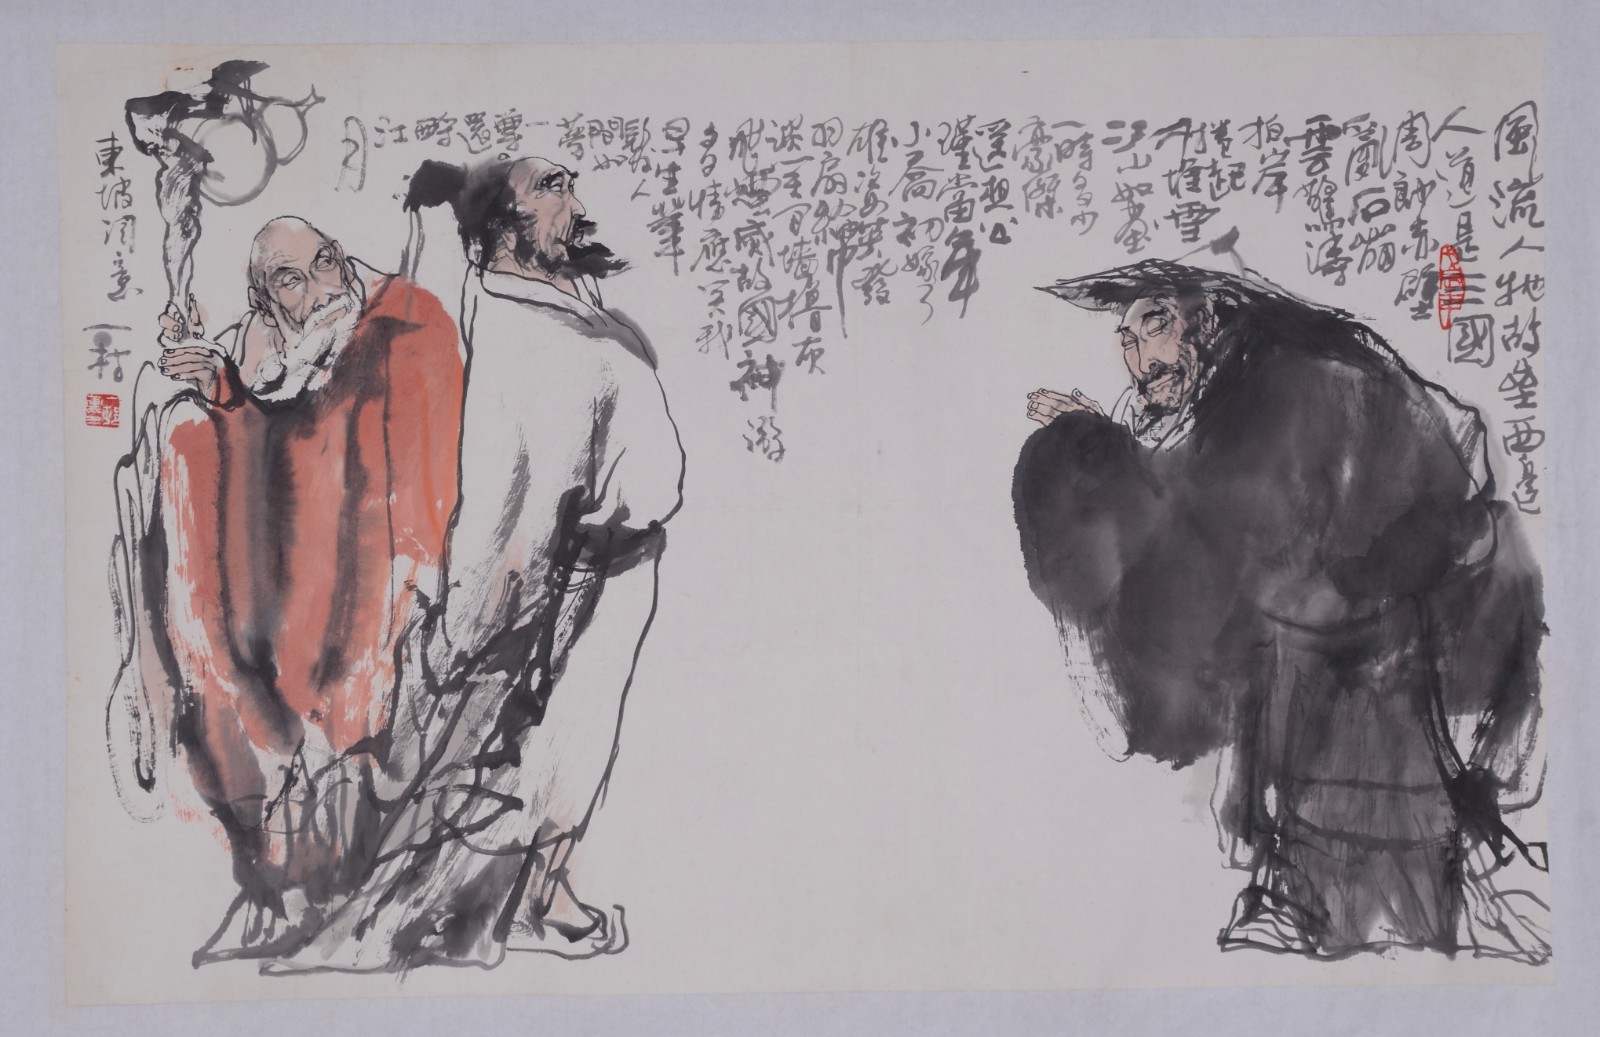 風流人物故壘西邊
人道是三國
周郎赤壁
亂石崩
雲驚濤
拍岸
捲起
千堆雪
江山如畫
一時多少
豪傑
遥想公
瑾當年
小喬初嫁了
雄姿英發
羽扇綸巾
談笑間墻櫓灰
飛煙滅故國神游
多情應笑我
早生華
髮人
間如
夢
一
尊
還
酹
江
月
東坡詞意